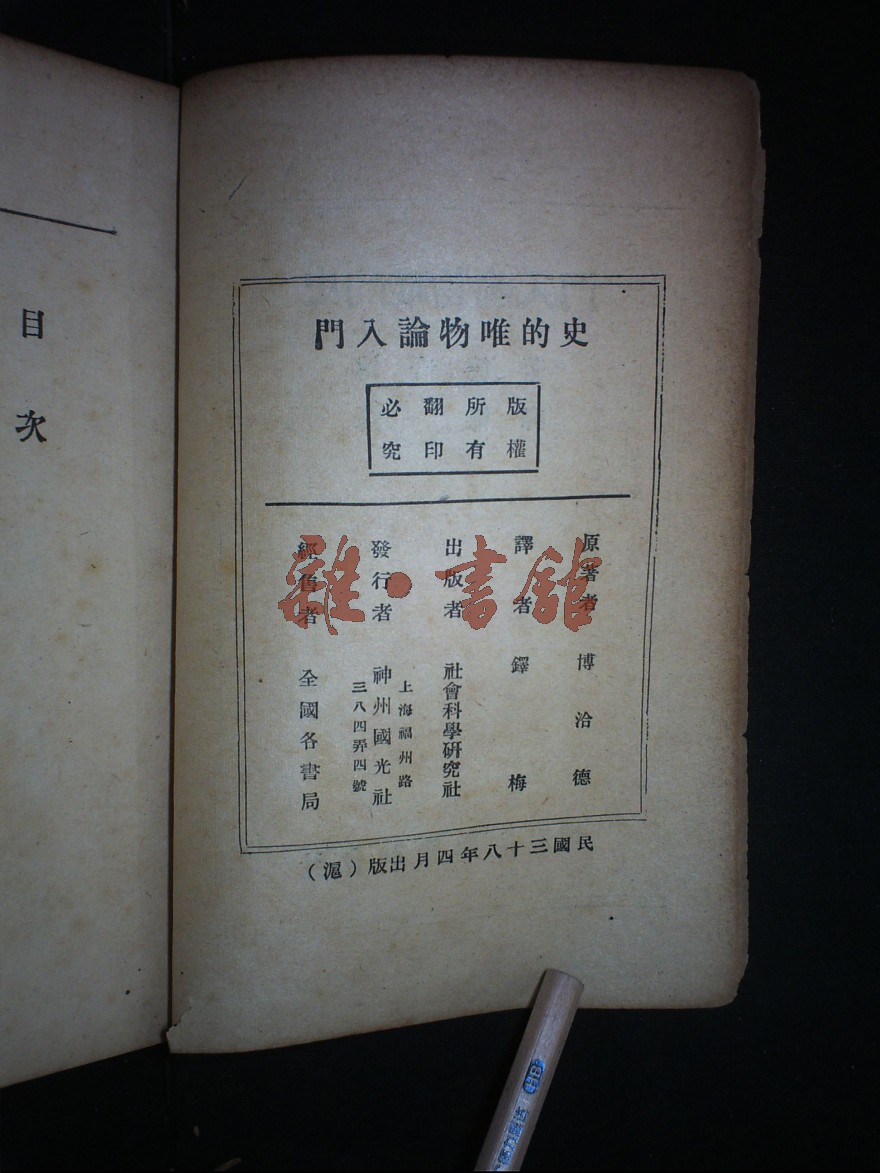 史的唯物論入門
版權所有翻印必究
原著者 博洽德
譯者 鐸梅
出版者 社會科學研究社
發行者 神州國光社
上海福州路
三八四弄四號
經售者 全國各書局
民國三十八年四月出版(滬)
目次
雜·書館